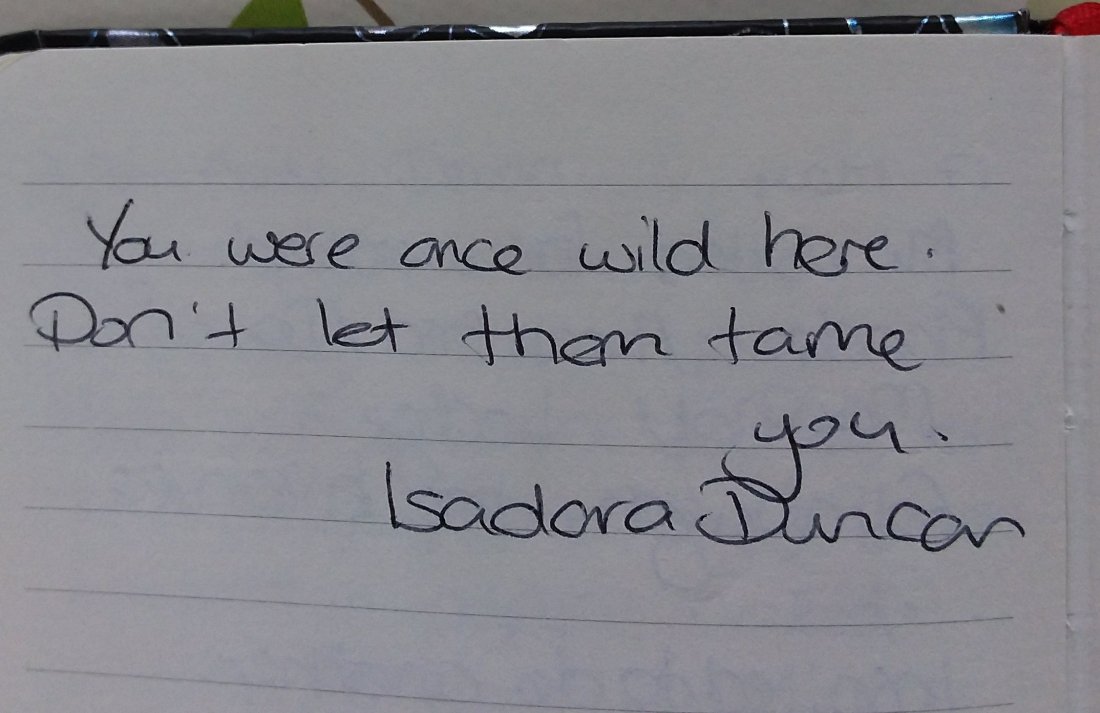 You were once wild here.
Don't let them tame
you.
Isadora Duncan